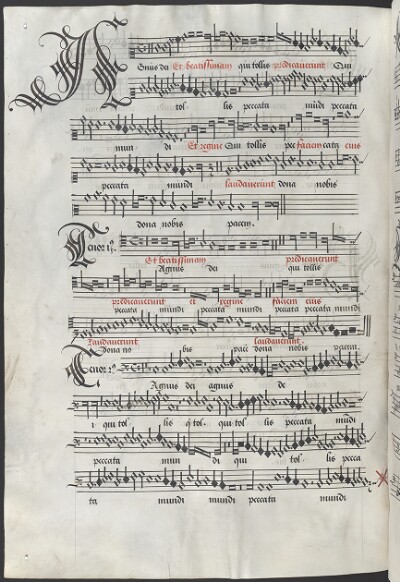 Agnus dei Et beatissimam qui tollis predicaverunt Qui
tol lis peccata mũdi peccata
mun di Et regine Qui tollis pec faciem cata eius
peccata mundi laudaverunt dona nobis
dona nobis pacem.
Tenor 1ꝰ. Et beatissimam predicaverunt
Agnus dei qui tollis
predicaverunt et regine faciem eius
peccata mundi peccata mundi peccata mundi
Laudaverunt laudaverunt.
Dona no bis pacē dona nobis pacem.
Tenor 2ꝰ
Agnus dei agnus de
i qui tol lis q̇ tol qui tol lis peccata mũdi
peccata mun di qui tol lis pecca
ta mundi mundi peccata mundi